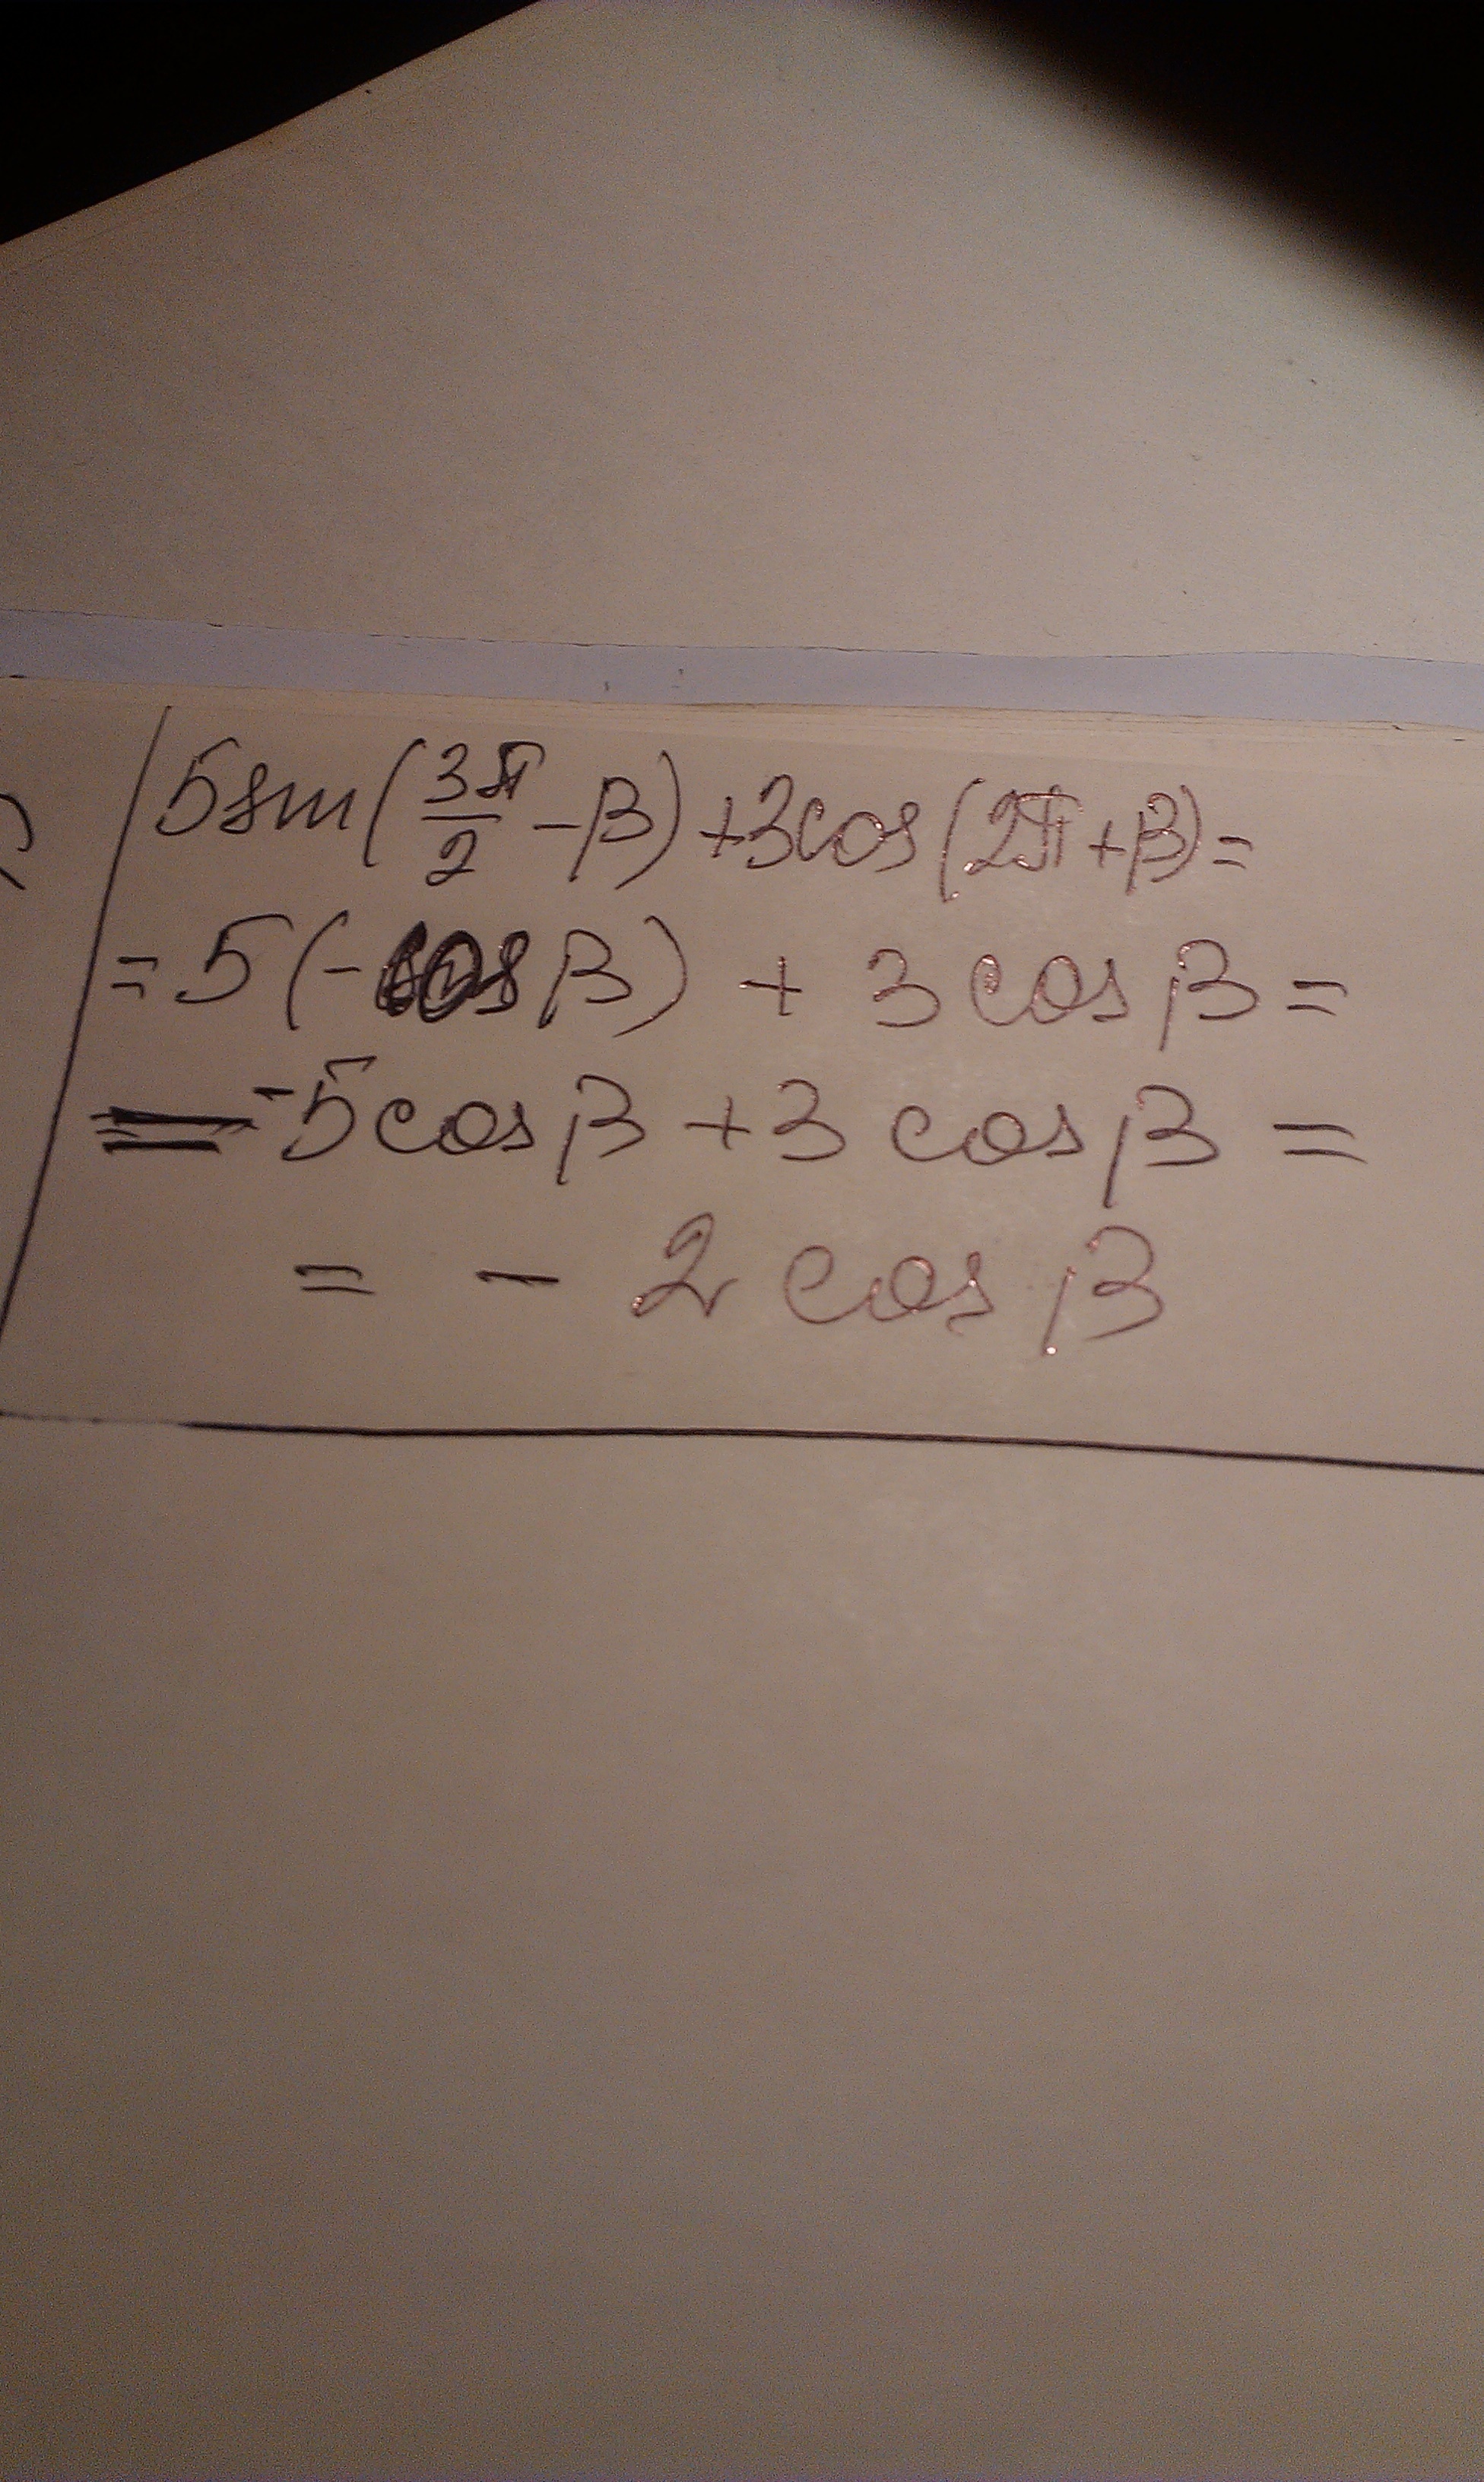 5sin(3π/2 - β) + 3cos(2π + β) =
= 5(-cos β) + 3 cos β =
= -5cos β + 3 cos β =
= - 2 cos β